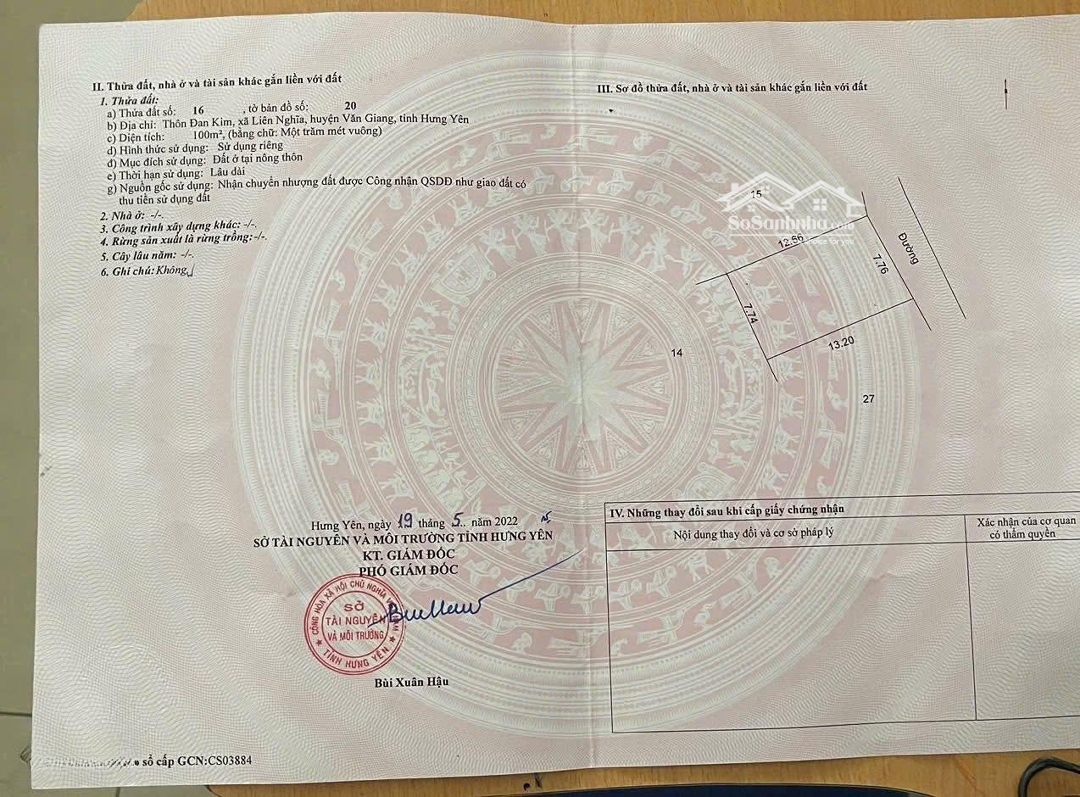 II. Thửa đất, nhà ở và tài sản khác gắn liền với đất
1. Thửa đất:
a) Thửa đất số: 16 , tờ bản đồ số: 20
b) Địa chỉ: Thôn Đan Kim, xã Liên Nghĩa, huyện Văn Giang, tỉnh Hưng Yên
c) Diện tích: 100m², (bằng chữ: Một trăm mét vuông)
d) Hình thức sử dụng: Sử dụng riêng
đ) Mục đích sử dụng: Đất ở tại nông thôn
e) Thời hạn sử dụng: Lâu dài
g) Nguồn gốc sử dụng: Nhận chuyển nhượng đất được Công nhận QSDĐ như giao đất có
thu tiền sử dụng đất
2. Nhà ở: -/-.
3. Công trình xây dựng khác: -/-.
4. Rừng sản xuất là rừng trồng:-/-.
5. Cây lâu năm: -/-.
6. Ghi chú: Không.
Hưng Yên, ngày 19 tháng 5.. năm 2022
SỞ TÀI NGUYÊN VÀ MÔI TRƯỜNG TỈNH HƯNG YÊN
KT. GIÁM ĐỐC
PHÓ GIÁM ĐỐC
CỘNG HÒA XÃ HỘI CHỦ NGHĨA VIỆT NAM
SỞ
TÀI NGUYÊN
VÀ MÔI TRƯỜNG
TỈNH HƯNG YÊN
Bùi Xuân Hậu
sổ cấp GCN:CS03884
III. Sơ đồ thửa đất, nhà ở và tài sản khác gắn liền với đất
15
SoSanhnha.com
12.66
Đường
7.76
7.74
13.20
14
27
IV. Những thay đổi sau khi cấp giấy chứng nhận
Nội dung thay đổi và cơ sở pháp lý
Xác nhận của cơ quan
có thẩm quyền